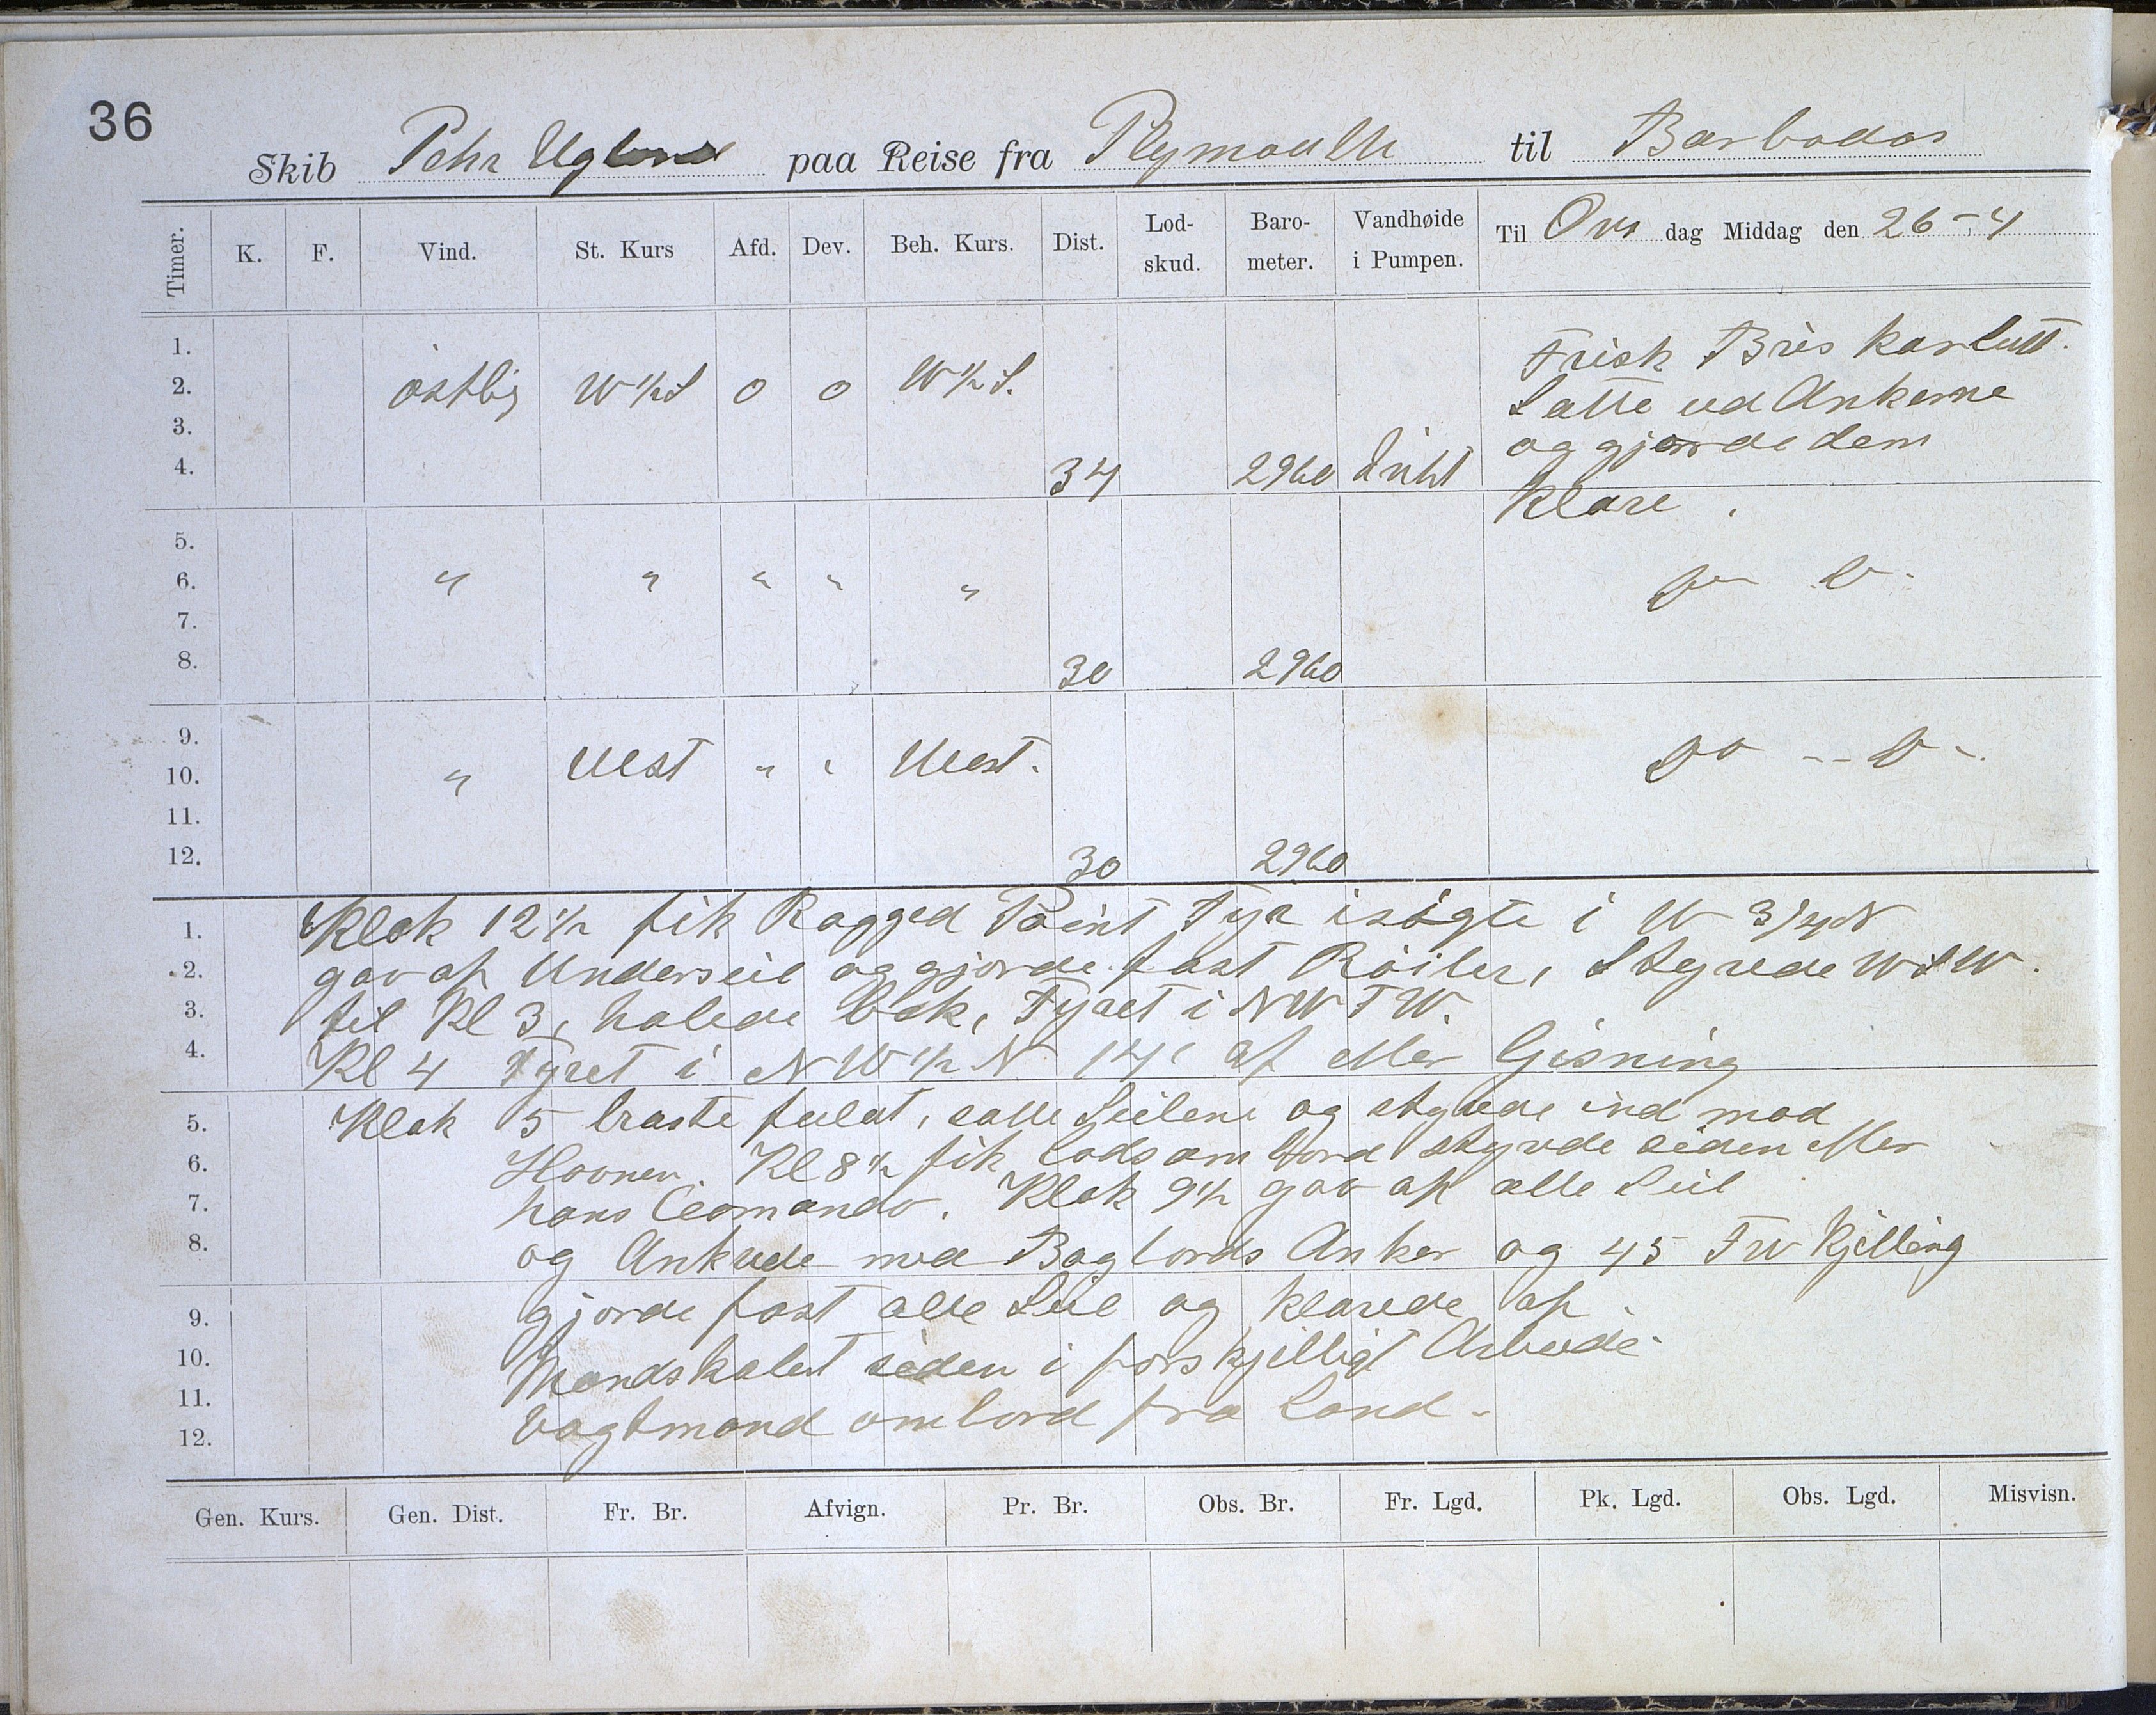 36
Skib Pehr Ugland paa Reise fra Plymouth til Barbados
Timer. K. F. Vind. St. Kurs Afd. Dev. Beh. Kurs. Dist. Lod-skud. Baro-meter. Vandhøide i Pumpen. Til Ons dag Middag den 26-4
1. Frisk Bris karluft.
2. östlig W½S 0 0 W½S. Satte ud Ankerne
3. og gjorde dem
4. 34 2960 Lœns
klare.
5.
6. " " " " " Do D.
7.
8. 30 2960
9.
10. " Vest " " Vest. Do -- D-.
11.
12. 30 2960
1. Klok 12½ fik Ragged Point Fyr isigte i W 3/4 N
2. gav op Underseil og gjorde fast Röiler, Styrede WSW.
3. til Kl 3, halede bak, Fyret i NWTW.
4. Kl 4 Fyret i NW½N 14' af efter Gisning
5. Klok 5 braste fuldt, satte Seilene og styrede ind mod
6. Havnen. Kl 8½ fik Lods om bord styrede siden efter
7. hans Comando. Klok 9½ gav op alle Seil
8. og Ankrede med Bagbords Anker og 45 Fv Kjetting
9. gjorde fast alle Seil og klarede op.
10. Mandskabet siden i forskjelligt Arbeide
11. Vagtmand ombord fra Land.
12.
Gen. Kurs. Gen. Dist. Fr. Br. Afvign. Pr. Br. Obs. Br. Fr. Lgd. Pk. Lgd. Obs. Lgd. Misvisn.